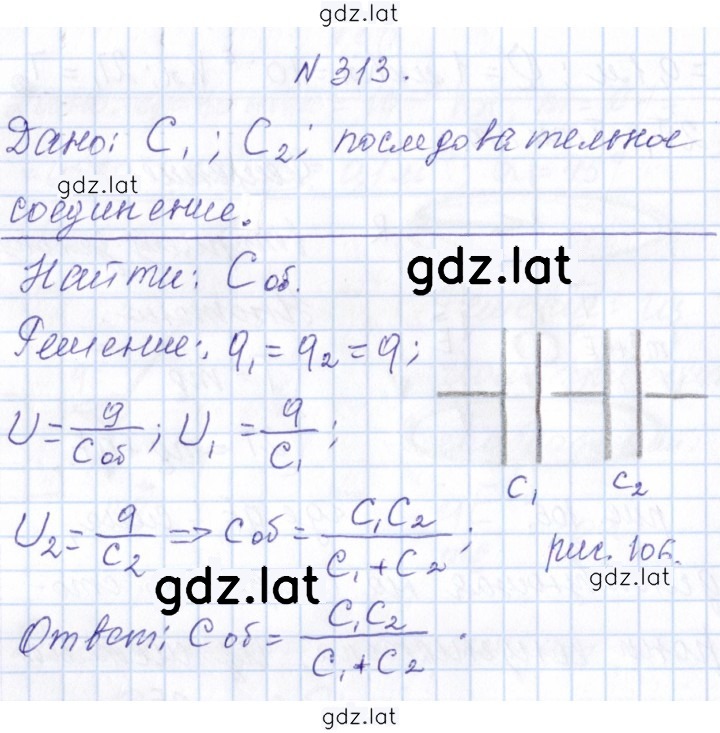 gdz.lat
N 313.
Дано: C₁; C₂; последовательное
gdz.lat
соединение.
Найти: Cоб.
gdz.lat
Решение: q₁ = q₂ = q;
U = q/Cоб; U₁ = q/C₁;
C₁ C₂
U₂ = q/C₂ => Cоб = C₁C₂/(C₁ + C₂);
рис. 106.
gdz.lat
gdz.lat
Ответ: Cоб = C₁C₂/(C₁ + C₂).
gdz.lat